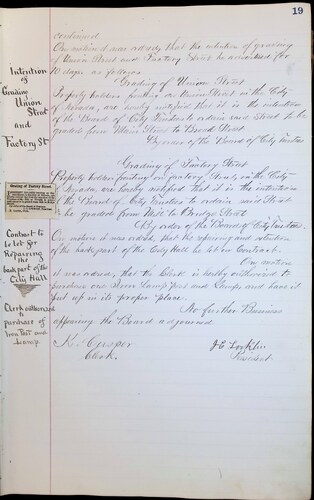 19
On motion it was ordered, that the intention of grading
of Union Street and Factory Street be advertised for
10 days as follows
Grading of Union Street
Property holders fronting on Union Street in the City
of Nevada, are hereby notified that it is the intention
of the Board of City Trustees to order said Street to be
graded from Main Street to Broad Street
By order of the Board of City Trustees
Grading of Factory Street
Property holders fronting on Factory Street, in the City
of Nevada, are hereby notified that it is the intention
of the Board of City Trustees to order said Street
to be graded from Mill to Street
By order of the Board of City Trustees.
On motion it was ordered, that the repairing and
of the back part of the City Hall be let on Contract.
On motion
it was ordered, that the Clerk is hereby authorized to
purchase one Iron Lamp post and Lamp and have it
put up in its proper place.
No further Business
appearing the Board adjourned
Clerk.
President
Intention
of
Grading
Union
Street
and
Factory St
Grading of Factory Street.
Contract to
be let for
Repairing
the
back part of the
City Hall
Clerk authorized
to
purchase of
Iron Post and
Lamp